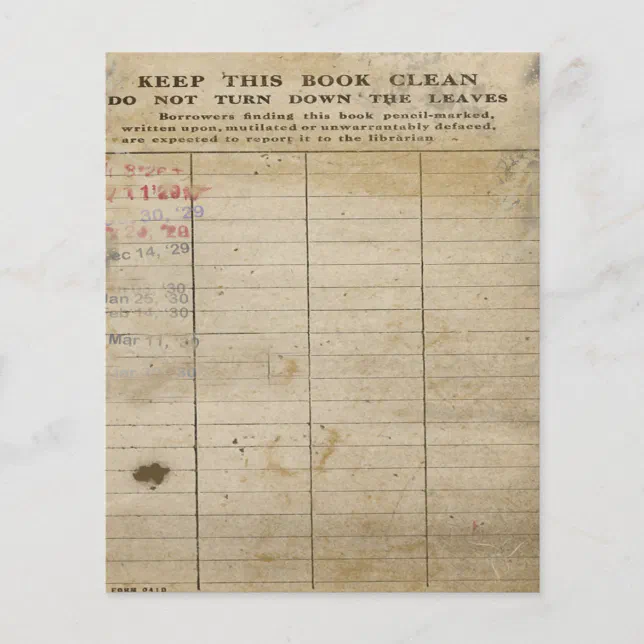 KEEP THIS BOOK CLEAN
DO NOT TURN DOWN THE LEAVES
Borrowers finding this book pencil-marked,
written upon, mutilated or unwarrantably defaced,
are expected to report it to the librarian
1 '29
30, '29
'29
ec 14, '29
'30
Jan 25, '30
Feb 14, '30
Mar 11, '30
FORM 241D